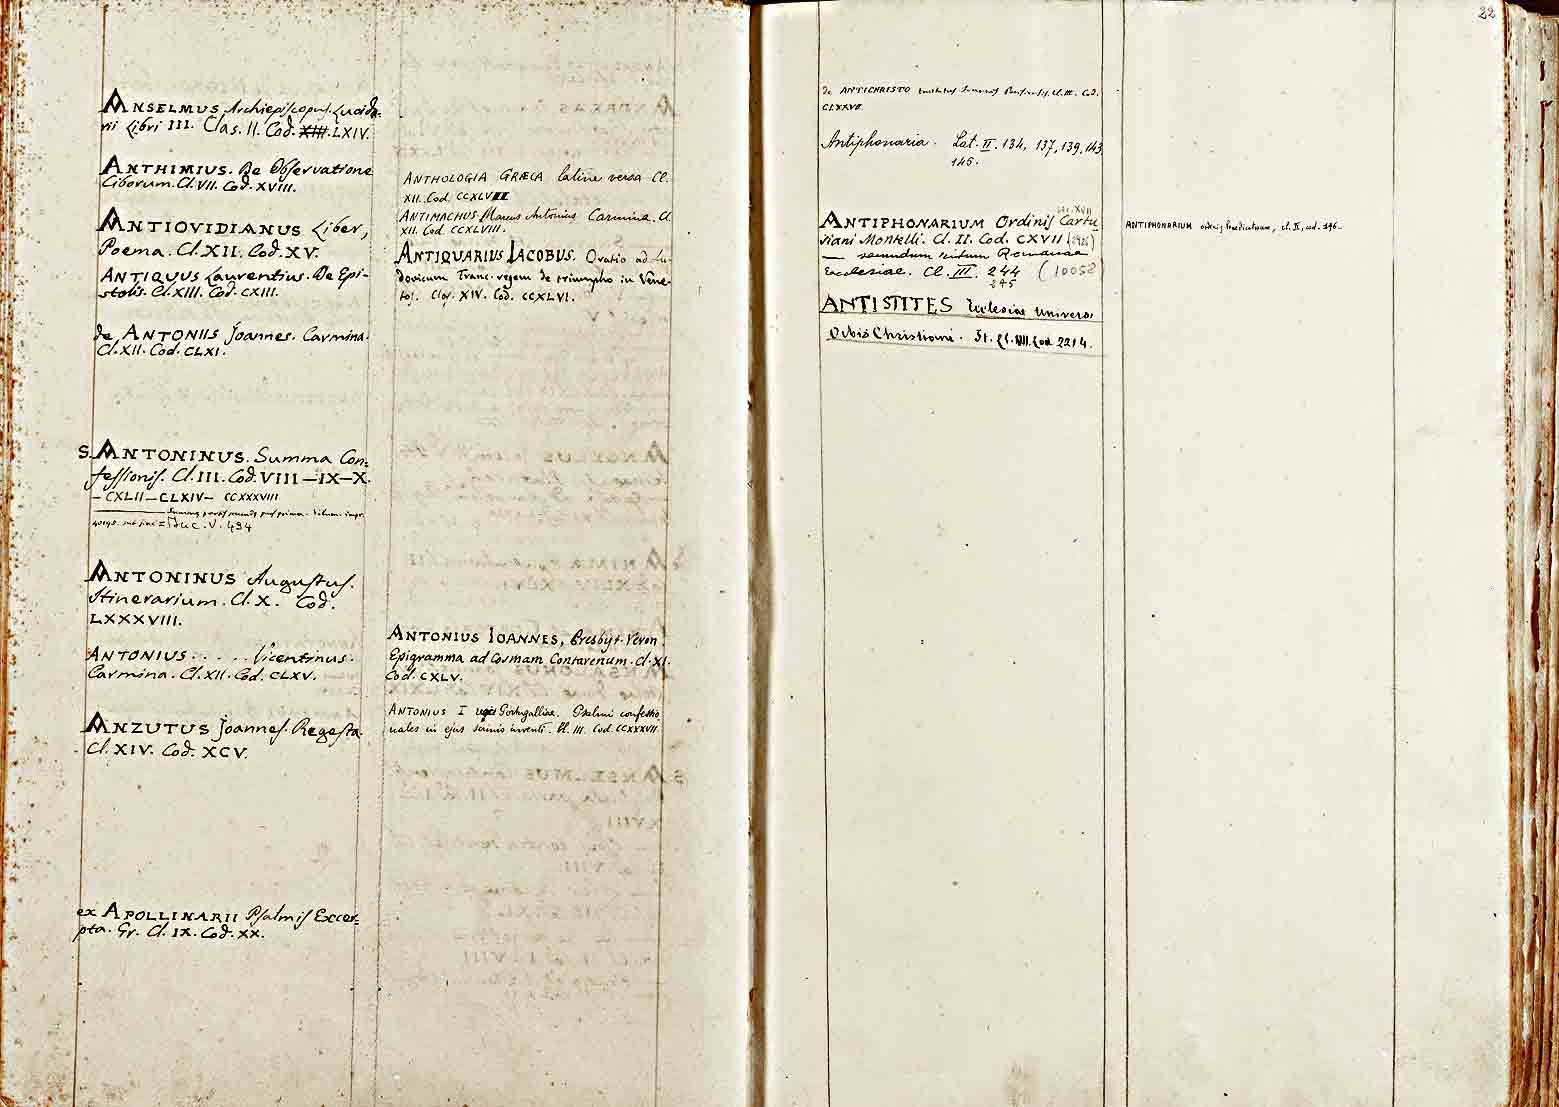 ANSELMUS Archiepiscopus. Lucida-
rii Libri III. Clas. II. Cod. XIII. LXIV.
ANTHIMIUS. De Observatione
Ciborum. Cl. VII. Cod. XVIII.
ANTIOVIDIANUS Liber,
Poema. Cl. XII. Cod. XV.
ANTIQUUS Laurentius. De Epi-
stolis. Cl. XIII. Cod. CXIII.
de ANTONIIS Joannes. Carmina.
Cl. XII. Cod. CLXI.
S. ANTONINUS. Summa Con-
fessionis. Cl. III. Cod. VIII—IX—X.
— CXLII—CLXIV— CCXXXVIII
Summa
V. 494
ANTONINUS Augustus.
Itinerarium. Cl. X. Cod.
LXXXVIII.
ANTONIUS . . . . . Vicentinus.
Carmina. Cl. XII. Cod. CLXV.
ANZUTUS Joannes. Regesta
Cl. XIV. Cod. XCV.
ex APOLLINARII Psalmis Excer-
pta. Gr. Cl. IX. Cod. XX.
ANTHOLOGIA GRÆCA latine versa Cl.
XII. Cod.
ANTIMACHUS Marcus Antonius Carmina. Cl
XII. Cod. CCXLVIII.
ANTIQUARIUS JACOBUS. Oratio ad Lu-
dovicum Franc. regem de triumpho in Vene-
tos. Clas. XIV. Cod. CCXLVI.
ANTONIUS IOANNES, Presbyt. Veron
Epigramma ad Cosmam Contarenum. Cl. XI.
Cod. CXLV.
ANTONIUS I regis Portugalliae. Psalmi confessio
nales in ejus scriniis inventi. Cl. III. Cod. CCXXXVII.
22
de ANTICHRISTO Cl. III. Cod.
CLXXVII.
Antiphonaria. Lat. II. 134, 137, 139, 143
145.
XVII
ANTIPHONARIUM Ordinis Cartu
siani Montelli. Cl. II. Cod. CXVII
— secundum ritum Romanae
Ecclesiae. Cl. III. 244 (10058
245
ANTISTITES Ecclesiae Universi
Orbis Christiani. It. Cl. VII. Cod. 2214.
ANTIPHONARIUM ordinis Praedicatorum, cl. II, cod. 196.